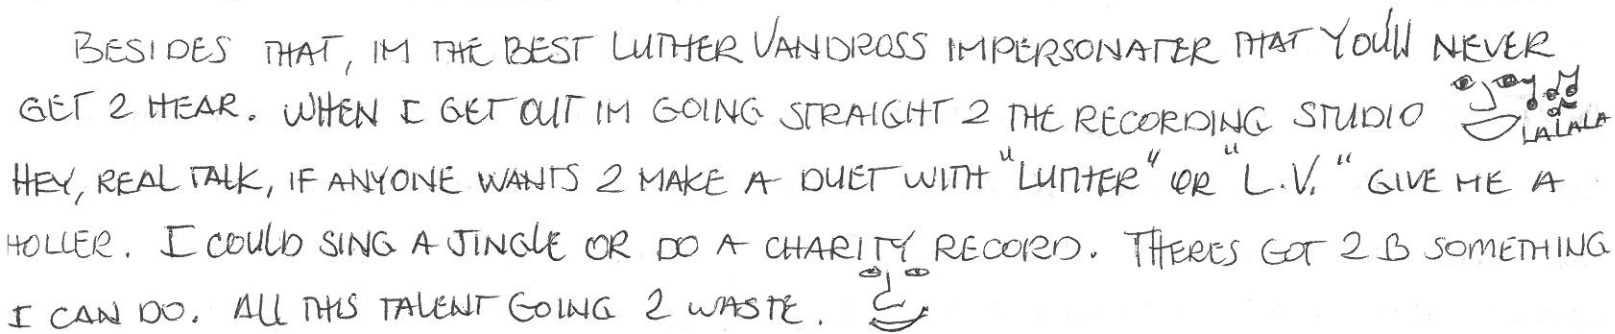 BESIDES THAT, IM THE BEST LUTHER VANDROSS IMPERSONATER THAT YOU'LL NEVER
GET 2 HEAR. WHEN I GET OUT IM GOING STRAIGHT 2 THE RECORDING STUDIO
LALALA
HEY, REAL TALK, IF ANYONE WANTS 2 MAKE A DUET WITH "LUTHER" OR "L.V." GIVE ME A
HOLLER. I COULD SING A JINGLE OR DO A CHARITY RECORD. THERES GOT 2 B SOMETHING
I CAN DO. ALL THIS TALENT GOING 2 WASTE.